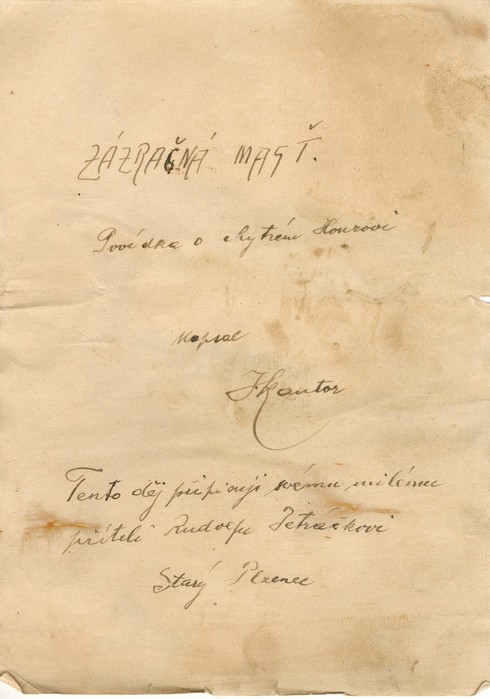 ZÁZRAČNÁ MASŤ.
Povídka o chytrém Honzovi
Napsal
J. Kantor
Tento děj připisuji svému milému
příteli Rudolfu
Starý Plzenec